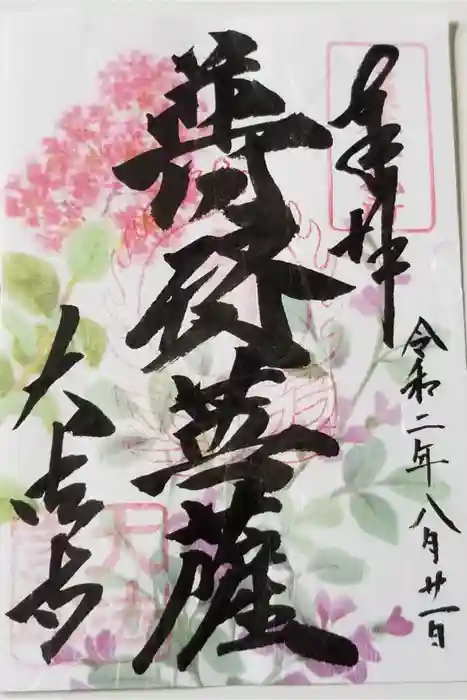 奉拝
令和二年八月廿一日
普賢菩薩
大吉寺